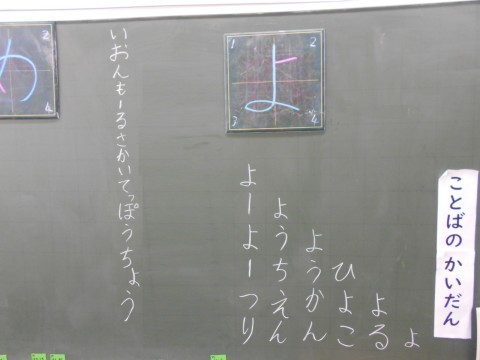 ことばの かいだん
よ
よる
ひよこ
ようかん
ようちえん
よーよーつり
1 2 3 4
よ
いおんもーるさかいてっぽうちょう
2
4